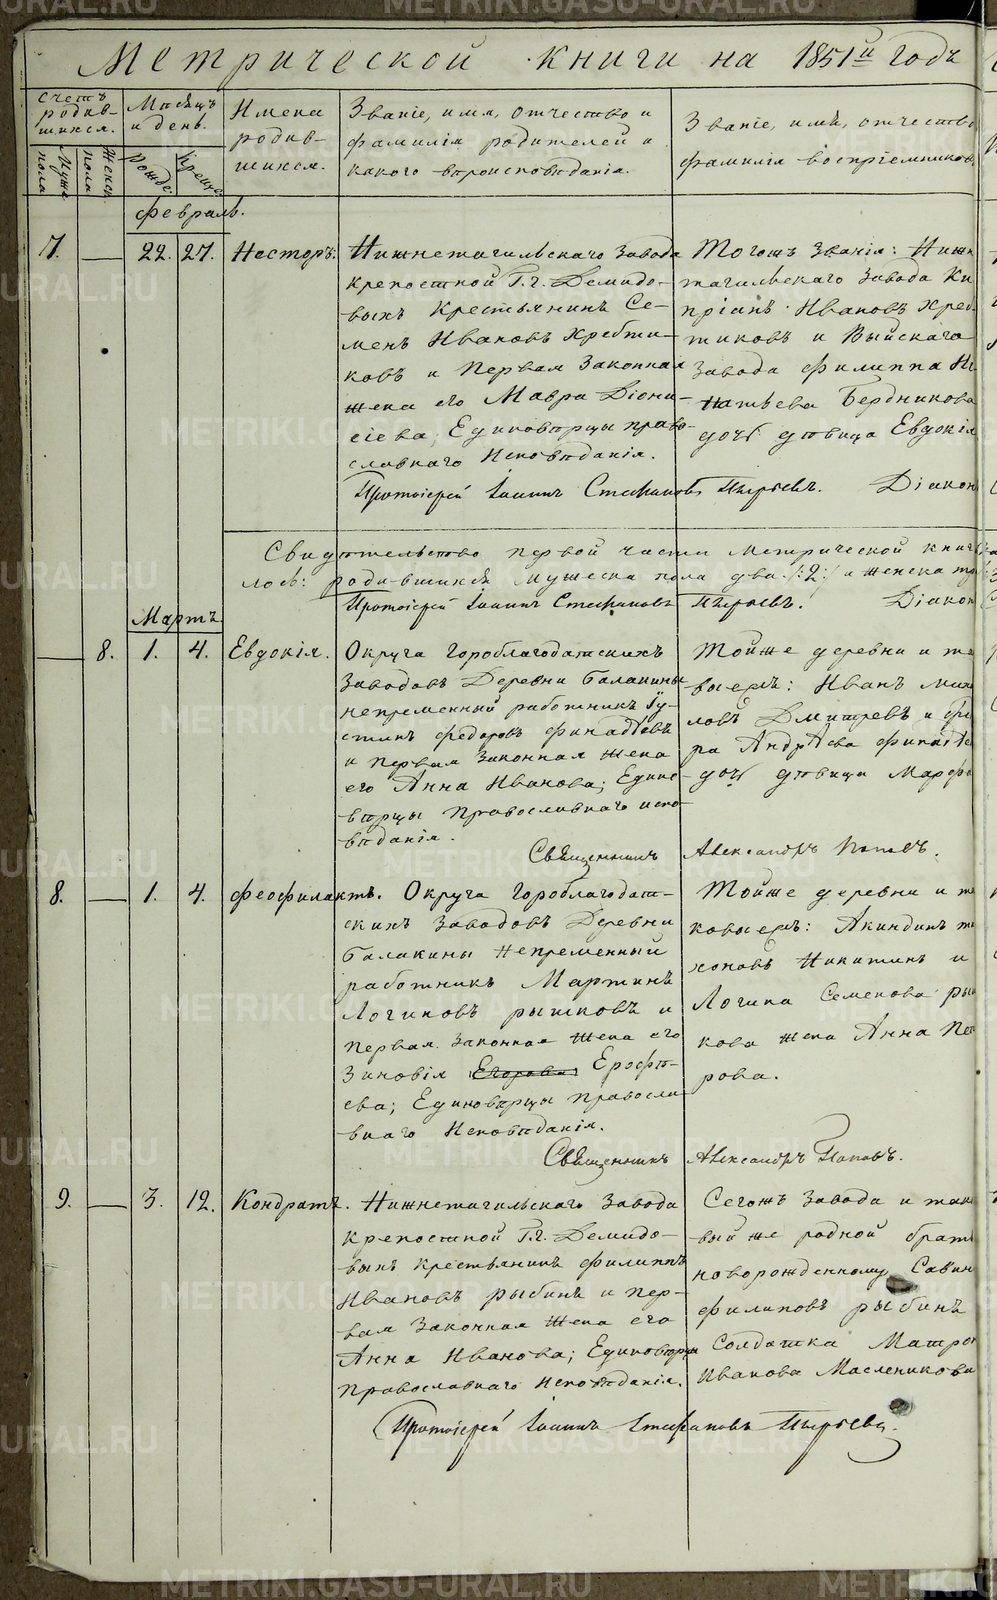 Метрической книги на 1851й годъ
Счетъ родив-шихся.
Мужс. пола
Женск. пола
Мѣсяцъ и день.
Рожд.
Крещ.
Имена родив-шихся.
Званіе, имя, отчество и
фамилія родителей и
какого вѣроисповѣданія.
Званіе, имя, отчество
фамилія воспріемниковъ
Февраль.
7. — 22. 27. Несторъ.
Нижнетагильскаго завода
крепостной Г.г. Демидо-
выхъ крестьянинъ Се-
менъ Ивановъ Хребти-
ковъ и первая законная
жена его Мавра Діони-
сіева; Единовѣрцы право-
славнаго Исповѣданія.
Тогожъ званія: Нижн
тагильскаго завода Ки
пріанъ Ивановъ Хреб-
тиковъ и Выйскаго
завода Филиппа Иг
натьева Бердникова
дочь дѣвица Евдокія
Протоіерей Іоаннъ Стефановъ Пырьевъ. Діакон
Свидѣтельство первой части метрической книг
лось: родившихся мужеска пола два /:2:/ и женска
Протоіерей Іоаннъ Стефановъ Пырьевъ. Діакон
Мартъ
— 8. 1. 4. Евдокія.
Округа Гороблагодатскихъ
заводовъ Деревни Балакины
непременный работникъ Іу-
стинъ Федоровъ Финадѣевъ
и первая законная жена
его Анна Иванова; Едино-
вѣрцы Православнаго испо-
вѣданія.
Тойже деревни и та
Иванъ Миха
ловъ Дмитревъ и
ра Андрѣева Финадѣе
дочь дѣвица Марфа
Священникъ Александръ Поповъ.
8. — 1. 4. Феофилактъ.
Округа Гороблагодат-
скихъ заводовъ Деревни
Балакины Непременный
работникъ Мартинъ
Логиновъ Рышковъ и
первая законная жена его
Зиновія Егорова Ерофѣ-
ева; Единовѣрцы правосла-
внаго Исповѣданія.
Тойже деревни и та
Акиндинъ Ти
хоновъ Никитинъ и
Логина Семенова Рыш
кова жена Анна Пет
рова.
Священникъ Александръ Поповъ.
9. — 3. 12. Кондратъ.
Нижнетагильскаго завода
крепостной Г.г. Демидо-
выхъ крестьянинъ Филиппъ
Ивановъ Рыбинъ и пер-
вая законная жена его
Анна Иванова; Единовѣрцы
православнаго Исповѣданія.
Сегожъ завода и тако
вый же родной братъ
новорожденному Савин
Филиповъ Рыбинъ
Солдатка Матрон
Иванова Масленикова
Протоіерей Іоаннъ Стефановъ Пырьевъ.
METRIKI.GASO-URAL.RU